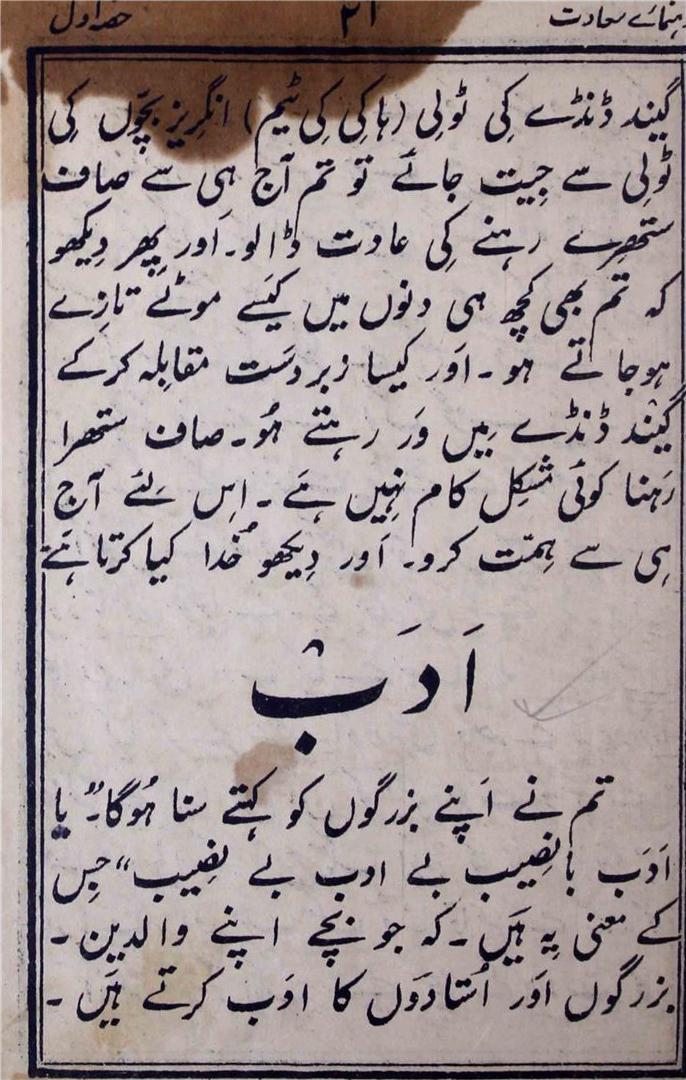 رہنمائے سعادت ۲۱ حصہ اول
گیند ڈنڈے کی ٹولی (ہاکی کی ٹیم) انگریز بچّوں کی
ٹولی سے جیت جائے تو تم آج ہی سے صاف
ستھرے رہنے کی عادت ڈالو۔ اَور پھر دیکھو
کہ تم بھی کچھ ہی دنوں میں کیَسے موٹے تازے
ہوجاتے ہو۔ اَور کیسا زبردَست مقابلہ کرکے
گیند ڈنڈے میں وَر رہتے ہُو۔ صاف ستھرا
رَہنا کوئی مشکِل کام نہیں ہَے۔ اِس لئے آج
ہی سے ہِمّت کرو۔ اَور دیکھو خُدا کیا کرتا ہَے
اَدَبْ
تم نے اَپنے بزرگوں کو کہتے سنا ہُوگا۔ "با
اَدَب بانصِیب بے ادب بے نصِیب" جِس
کے معنی یِہ ہَیں۔ کہ جو بچے اپنے والدین۔
بزرگوں اَور اُستادوَں کا ادَب کرتے ہَیں۔